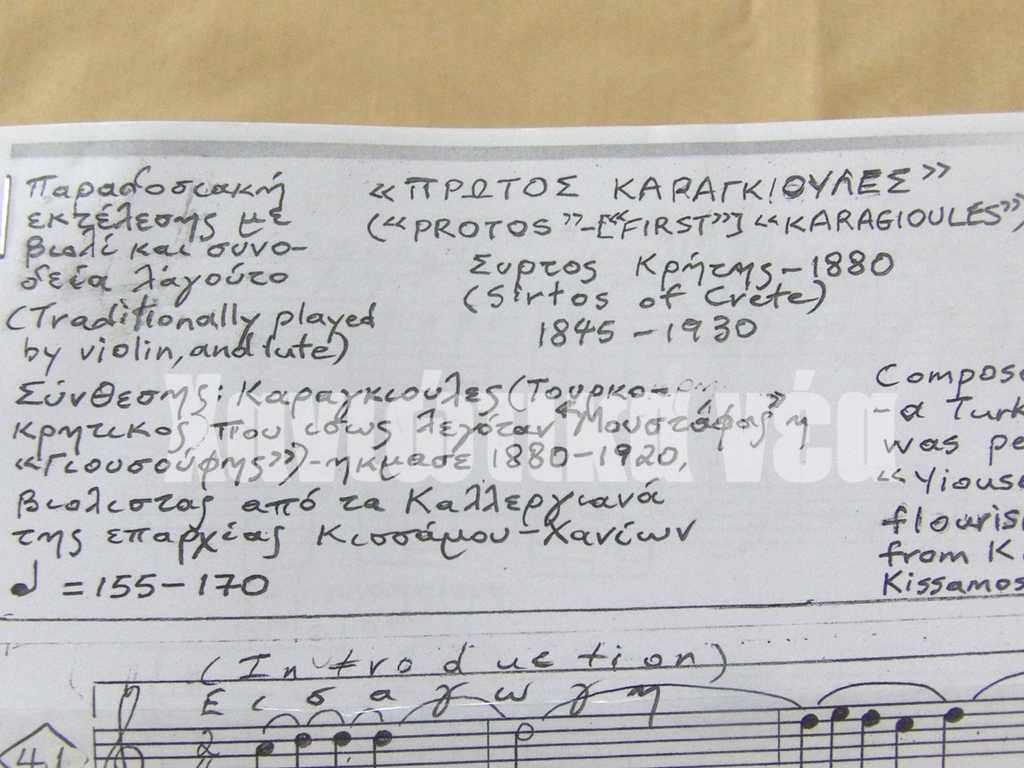 Παραδοσιακή
εκτέλεσης με
βιολί και συνο-
δεία λάγούτο
(Traditionally played
by violin, and lute)
«ΠΡΩΤΟΣ ΚΑΡΑΓΚΙΟΥΛΕΣ»
(«PROTOS»-[«FIRST»] «KARAGIOULES»)
Συρτος Κρήτης-1880
(Sirtos of Crete)
1845-1930
Σύνθεσης: Καραγκιούλες (Τουρκο-
κρητικος που ισως λεγόταν "Μουστάφας" ή
«Γιουσούφης»)-ηκμασε 1880-1920,
βιολιστας από τα Καλλεργιανά
της επαρχίας Κισσάμου-Χανίων
♩ = 155-170
Compose
-a Turk
was pe
«Yiouse
flouris
from K
Kissamos
(Introduction)
Εισαγωγη
41
2
Χανιώτικα νέα